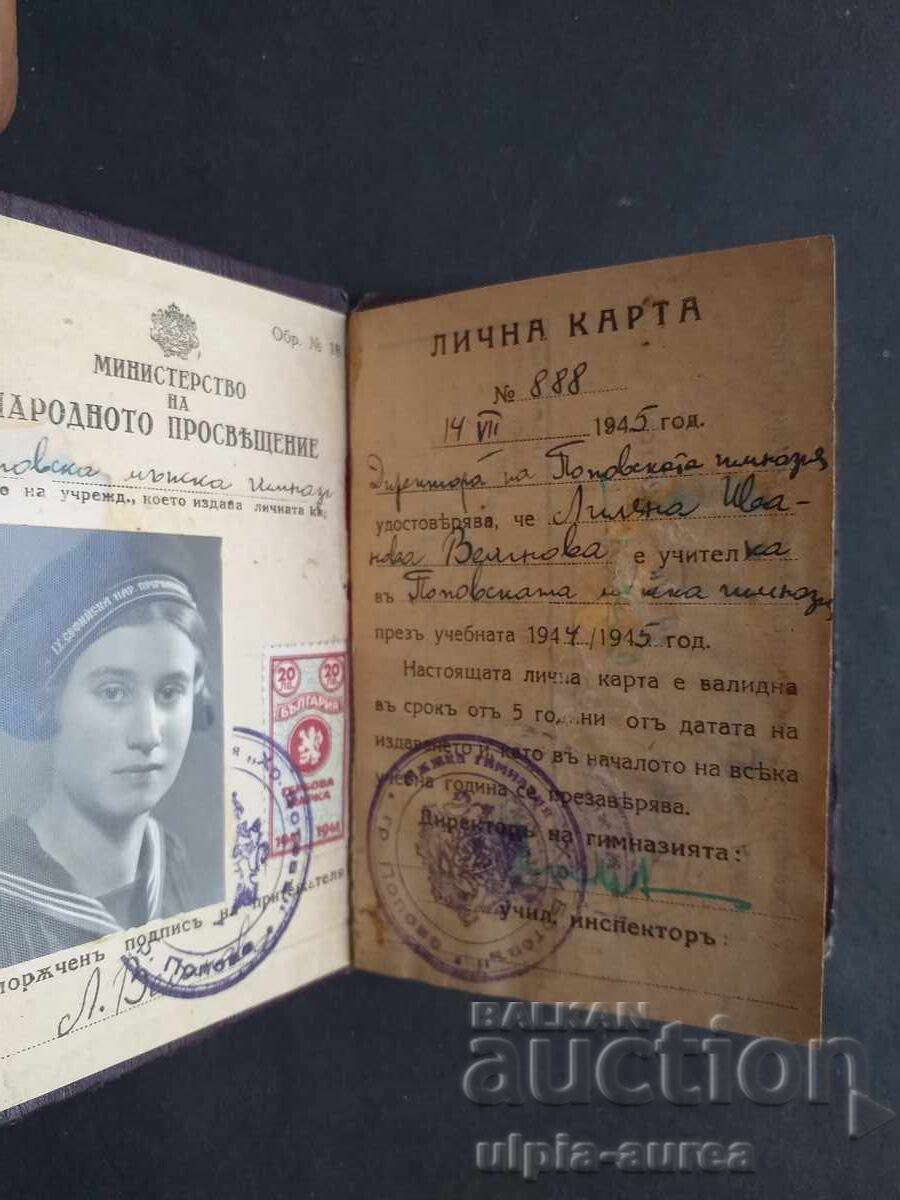 Обр. № 18
МИНИСТЕРСТВО
НА
НАРОДНОТО ПРОСВѢЩЕНИЕ
мѫжка гимназ
на учрежд., което издава личната
IX. СОФИЙСКА НАР. ПРОГИМН
20 20
ЛВ. ЛВ.
БЪЛГАРИЯ
ГЕРБОВА
МАРКА
1941 1941
подпис на притежателя
Л. Ве
гр. Попово
ЛИЧНА КАРТА
№ 888
14 VII 1945 год.
Директора на Поповската гимназия
удостовѣрява, че Лиляна Ива-
нова Велинова е учителка
въ Поповската мѫжка гимназия
презъ учебната 1944/1945 год.
Настоящата лична карта е валидна
въ срокъ отъ 5 години отъ датата на
издаването и, като въ началото на всѣка
учебна година се презавѣрява.
Директоръ на гимназията:
учил. инспекторъ:
мѫжка гимназия „Хр. Ботевъ“
гр. Попово
BALKAN
auction
ulpia-aurea